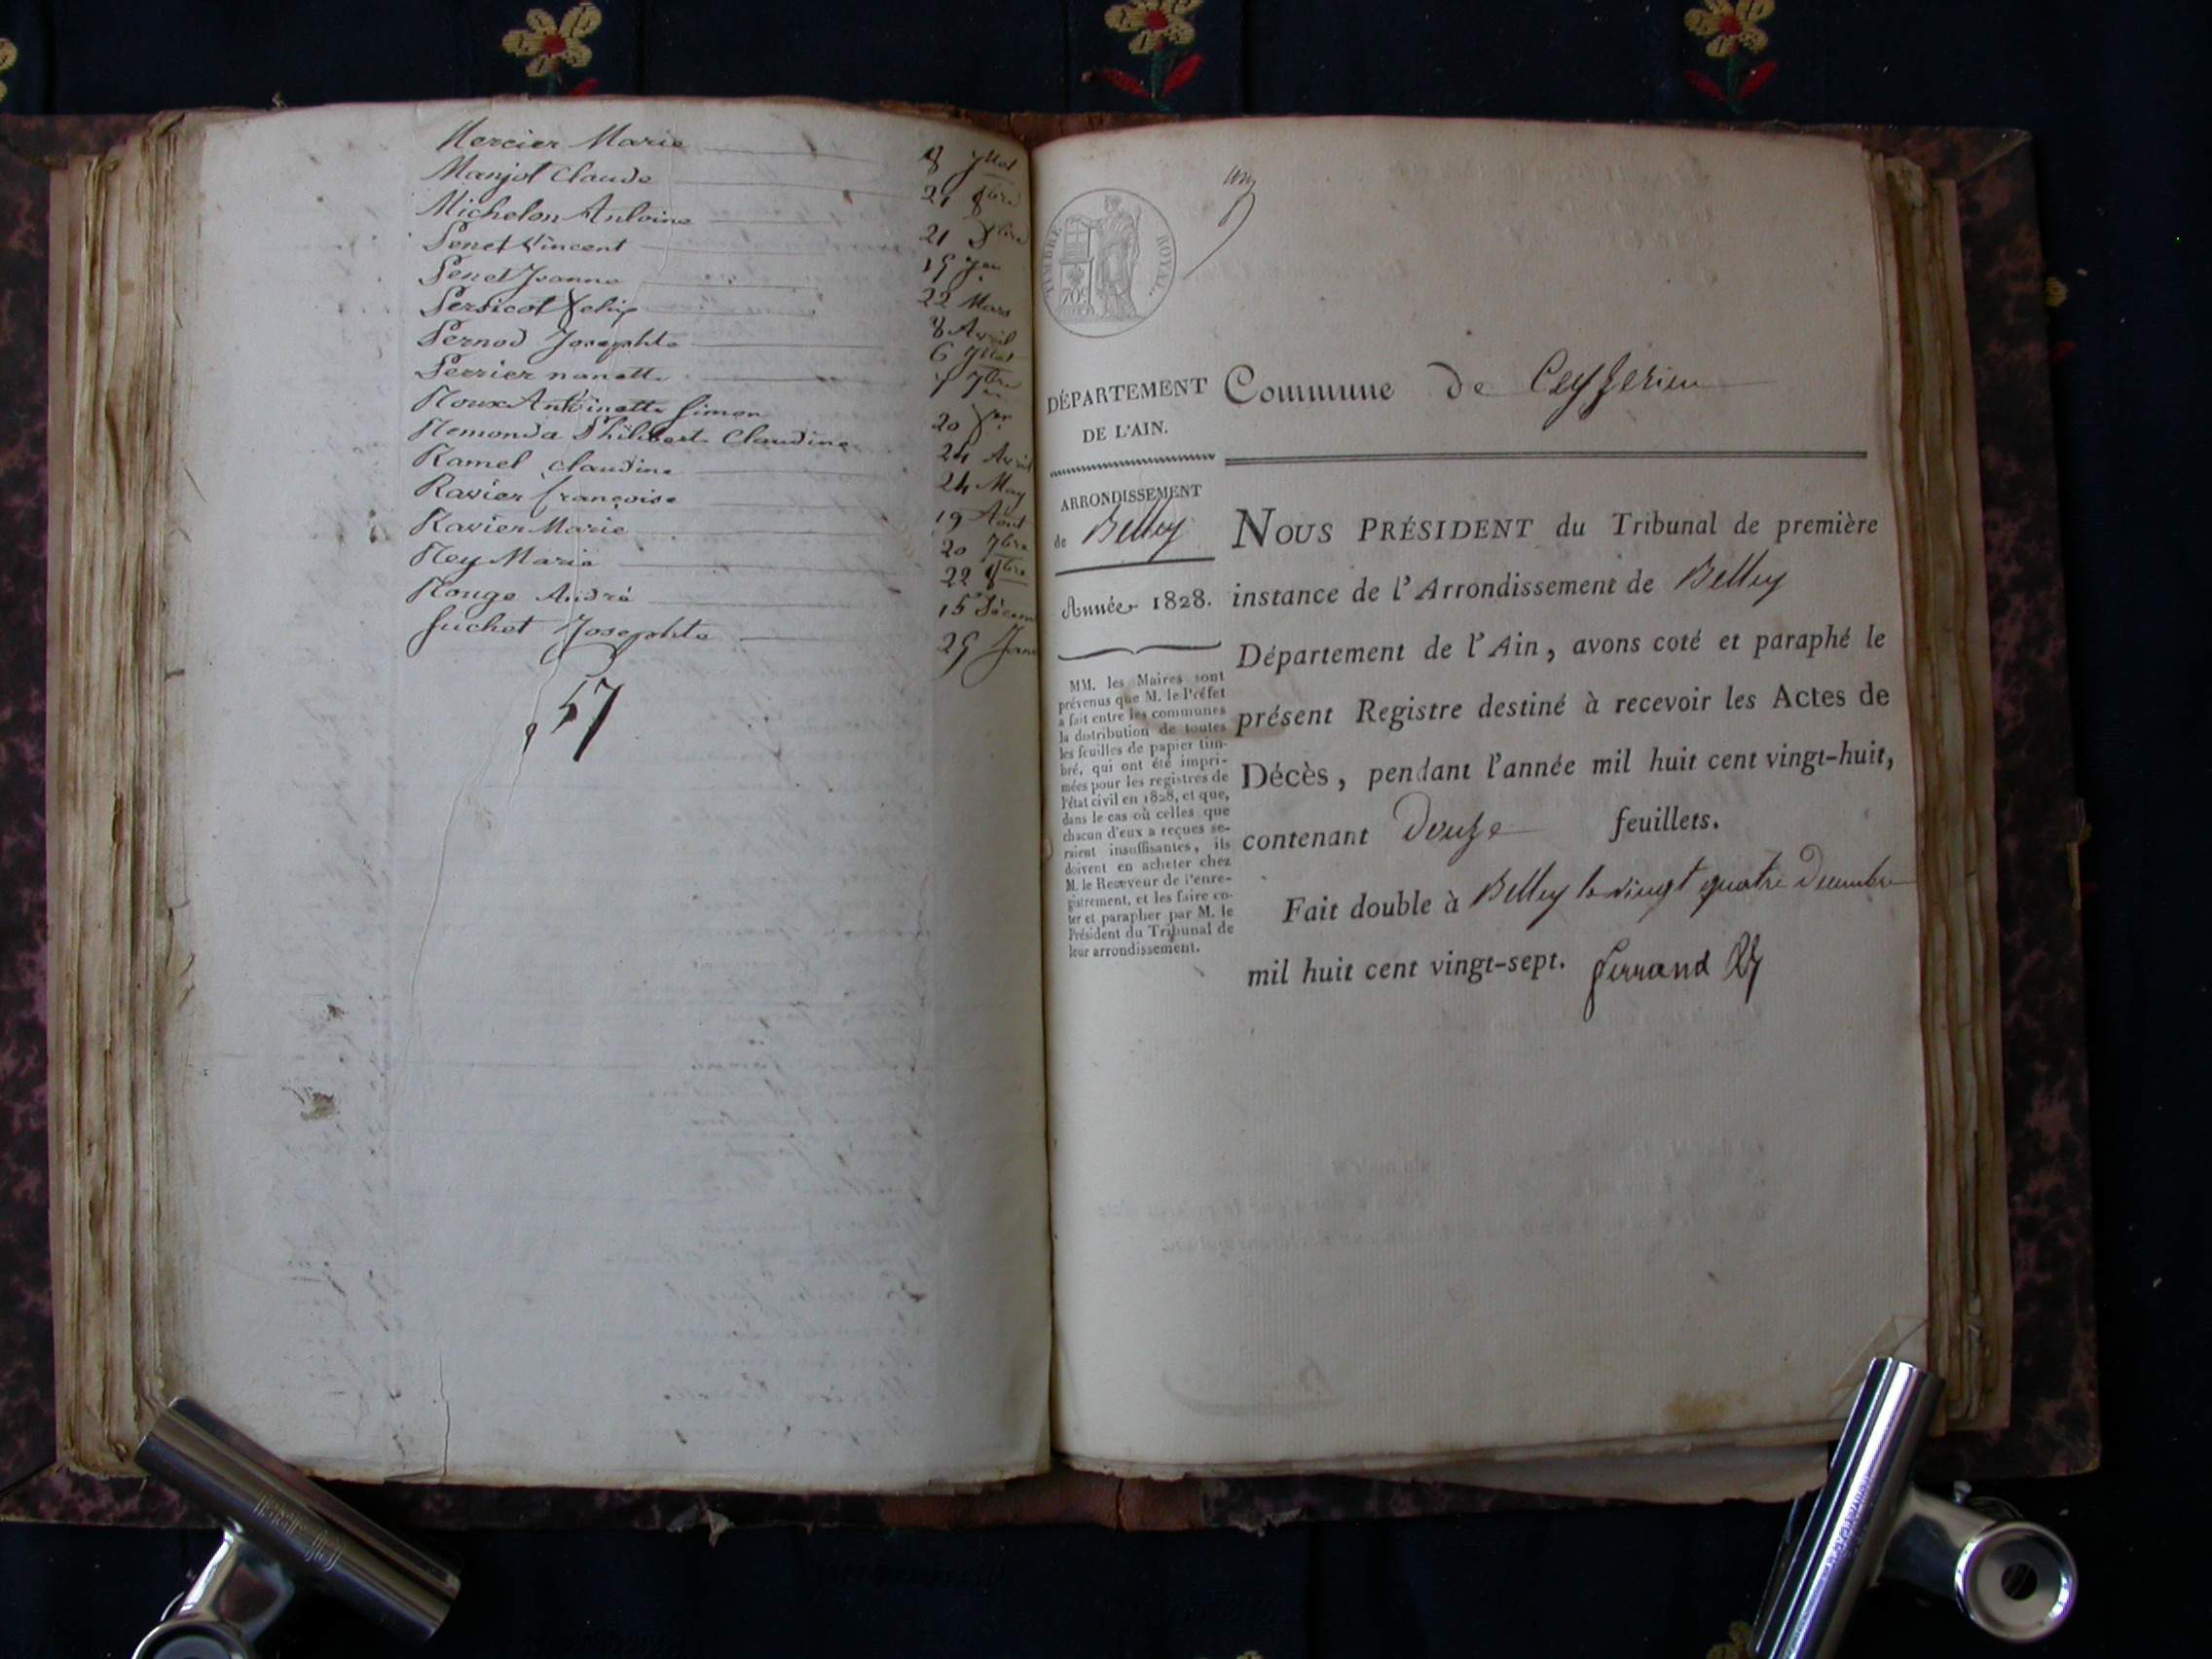 Mercier Marie 8 Jllet
Manjot Claude 21 8bre
Michelon Antoine 21 Xbre
Penet Vincent 19 Jan
Penet Jeanne 22 Mars
Persicot 8 Avril
Pernod Josephte 6 Jllet
Perrier nanette 7bre
Roux Antoinette Simon 20
Remonda Philibert Claudine 24 Avril
Ramel Claudine 24 May
Ravier françoise 19 Aout
Ravier Marie 20 7bre
Rey Marie 22 8bre
Rouge André 15 Décem
Suchet Josephte 25 Janv
57
TIMBRE ROYAL.
70c
DÉPARTEMENT
DE L'AIN.
ARRONDISSEMENT
de Belley
Année 1828.
MM. les Maires sont
prévenus que M. le Préfet
a fait entre les communes
la distribution de toutes
les feuilles de papier tim-
bré, qui ont été impri-
mées pour les registres de
l'état civil en 1828, et que,
dans le cas où celles que
chacun d'eux a reçues se-
raient insuffisantes, ils
doivent en acheter chez
M. le Receveur de l'enre-
gistrement, et les faire co-
ter et parapher par M. le
Président du Tribunal de
leur arrondissement.
Commune de Ceyzerieu
NOUS PRÉSIDENT du Tribunal de première
instance de l'Arrondissement de Belley
Département de l'Ain, avons coté et paraphé le
présent Registre destiné à recevoir les Actes de
Décès, pendant l'année mil huit cent vingt-huit,
contenant Douze feuillets.
Fait double à Belley le vingt quatre Decembre
mil huit cent vingt-sept. ferrand